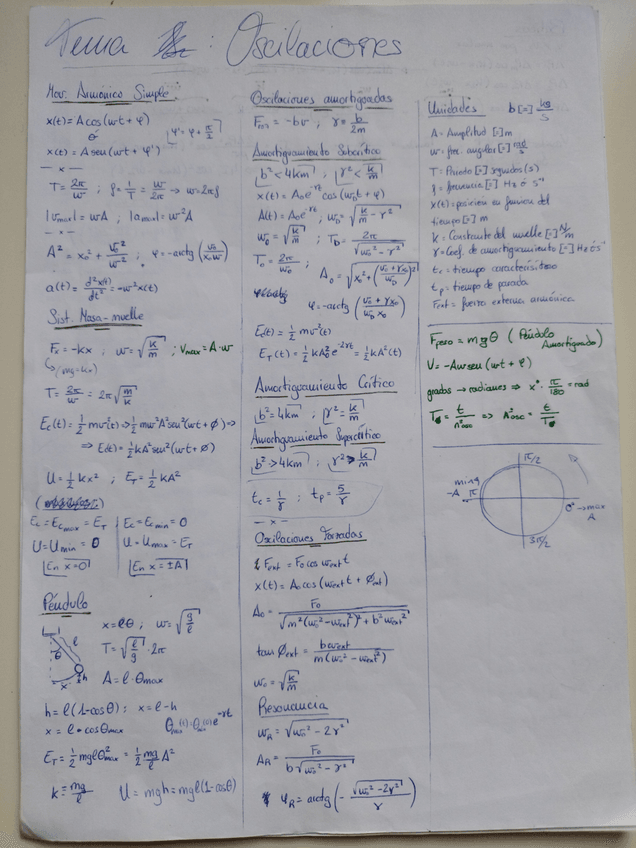 Tema : Oscilaciones
Mov. Armónico Simple
x(t) = A cos(ωt + φ)
ó
x(t) = A sen(ωt + φ')
φ' = φ + π/2
T = 2π/ω ; f = 1/T = ω/2π → ω = 2πf
|vmax| = ωA ; |amax| = ω²A
A² = x₀² + v₀²/ω² ; φ = -arctg (v₀/x₀ω)
a(t) = d²x(t)/dt² = -ω²x(t)
Sist. Masa-muelle
Fx = -kx ; ω = √(k/m) ; vmax = A·ω
T = 2π/ω = 2π√(m/k)
Ec(t) = 1/2 mv²(t) ⇒ 1/2 mω²A²sen²(ωt + ∅) ⇒
⇒ Ec(t) = 1/2 kA²sen²(ωt + ∅)
U = 1/2 kx² ; ET = 1/2 kA²
Ec = Ecmax = ET
U = Umin = 0
En x=0
Ec = Ecmin = 0
U = Umax = ET
En x = ±A
Péndulo
x = ℓθ ; ω = √(g/ℓ)
T = √(ℓ/g) · 2π
A = ℓ · θmax
θ ℓ h x
h = ℓ(1-cosθ) ; x = ℓ-h
x = ℓ · cosθmax
ET = 1/2 mgℓθ²max = 1/2 mg/ℓ A²
k = mg/ℓ U = mgh = mgℓ(1-cosθ)
Oscilaciones amortiguadas
= -bv ; γ = b/2m
Amortiguamiento Subcrítico
b² < 4km ; γ² < k/m
x(t) = A₀e^-γt cos(ωDt + φ)
A(t) = A₀e^-γt ; ωD² = √(k/m - γ²)
ω₀ = √(k/m) ; TD = 2π/√(ω₀² - γ²)
T₀ = 2π/ω₀ ; A₀ = √(x₀² + ((v₀ + γx₀)/ωD)²)
φ = -arctg ((v₀ + γx₀)/ωDx₀)
Ec(t) = 1/2 mv²(t)
ET(t) = 1/2 kA₀²e^-2γt = 1/2 kA²(t)
Amortiguamiento Crítico
b² = 4km ; γ² = k/m
Amortiguamiento Supercrítico
b² > 4km ; γ² > k/m
tc = 1/γ ; tp = 5/γ
Oscilaciones Forzadas
Fext = F₀ cos ωext t
x(t) = A₀ cos(ωext t + ∅ext)
A₀ = F₀/√(m²(ω₀² - ωext²)² + b²ωext²)
tan ∅ext = bωext/m(ω₀² - ωext²)
ω₀ = √(k/m)
Resonancia
ωR = √(ω₀² - 2γ²)
AR = F₀/b√(ω₀² - γ²)
φR = arctg (- √(ω₀² - 2γ²)/γ)
Unidades b[=] kg/s
A = Amplitud [=] m
ω = frec. angular [=] rad/s
T = Periodo [=] segundos (s)
f = frecuencia [=] Hz ó s⁻¹
x(t) = posición en función del
tiempo [=] m
K = Constante del muelle [=] N/m
γ = Coef. de amortiguamiento [=] Hz ó s⁻¹
tc = tiempo característico
tp = tiempo de parada
Fext = fuerza externa armónica
Fpeso = mgθ (Péndulo
Amortiguado)
V = -Aωsen(ωt + φ)
grados → radianes ⇒ x° · π/180 = rad
π/2
-A π
0° → max
A
3π/2